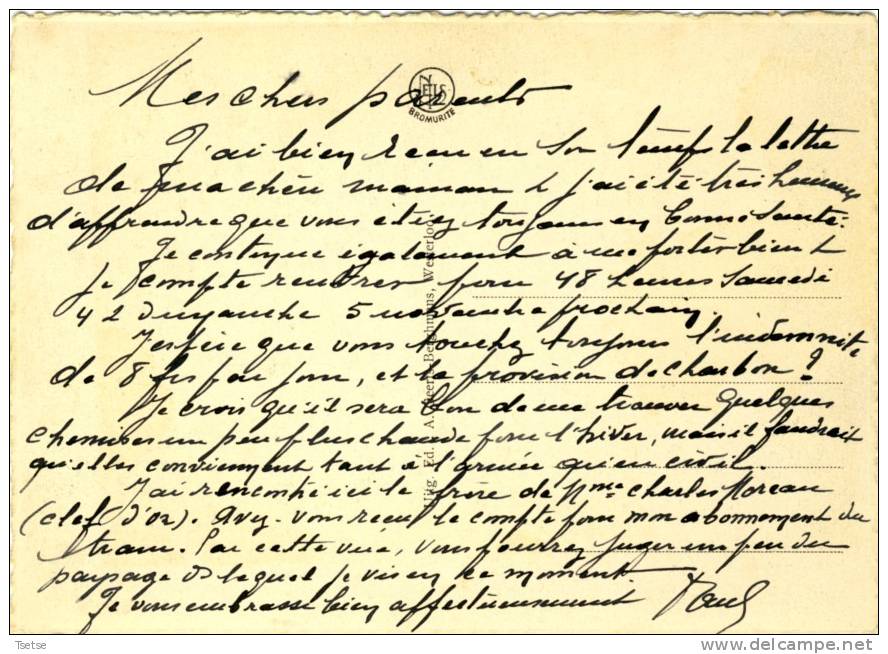 Mes chers parents
J'ai bien reçu en son temps la lettre
de ma chère maman & j'ai été très heureux
d'apprendre que vous étiez toujours en bonne santé.
Je continue également à me porter bien &
je compte rentrer pour 48 heures samedi
4 & dimanche 5 novembre prochain.
J'espère que vous touchez toujours l'indemnité
de 8 frs par jour, et la provision de charbon?
Je crois qu'il sera bon de me trouver quelques
chemises un peu plus chaude pour l'hiver, mais il faudrait
qu'elles conviennent tant à l'armée qu'en civil.
J'ai rencontré ici le frère de Mme Charles Moreau
(clef d'or). Avez-vous reçu le compte pour mon abonnement du
tram. Par cette vue, vous pourrez juger un peu du
paysage dans lequel je vis en ce moment
Je vous embrasse bien affectueusement Paul
NELS
BROMURITE
Uitg. Ed. A. Beerens-Berghmans, Westerloo
Tsetse
www.delcampe.net